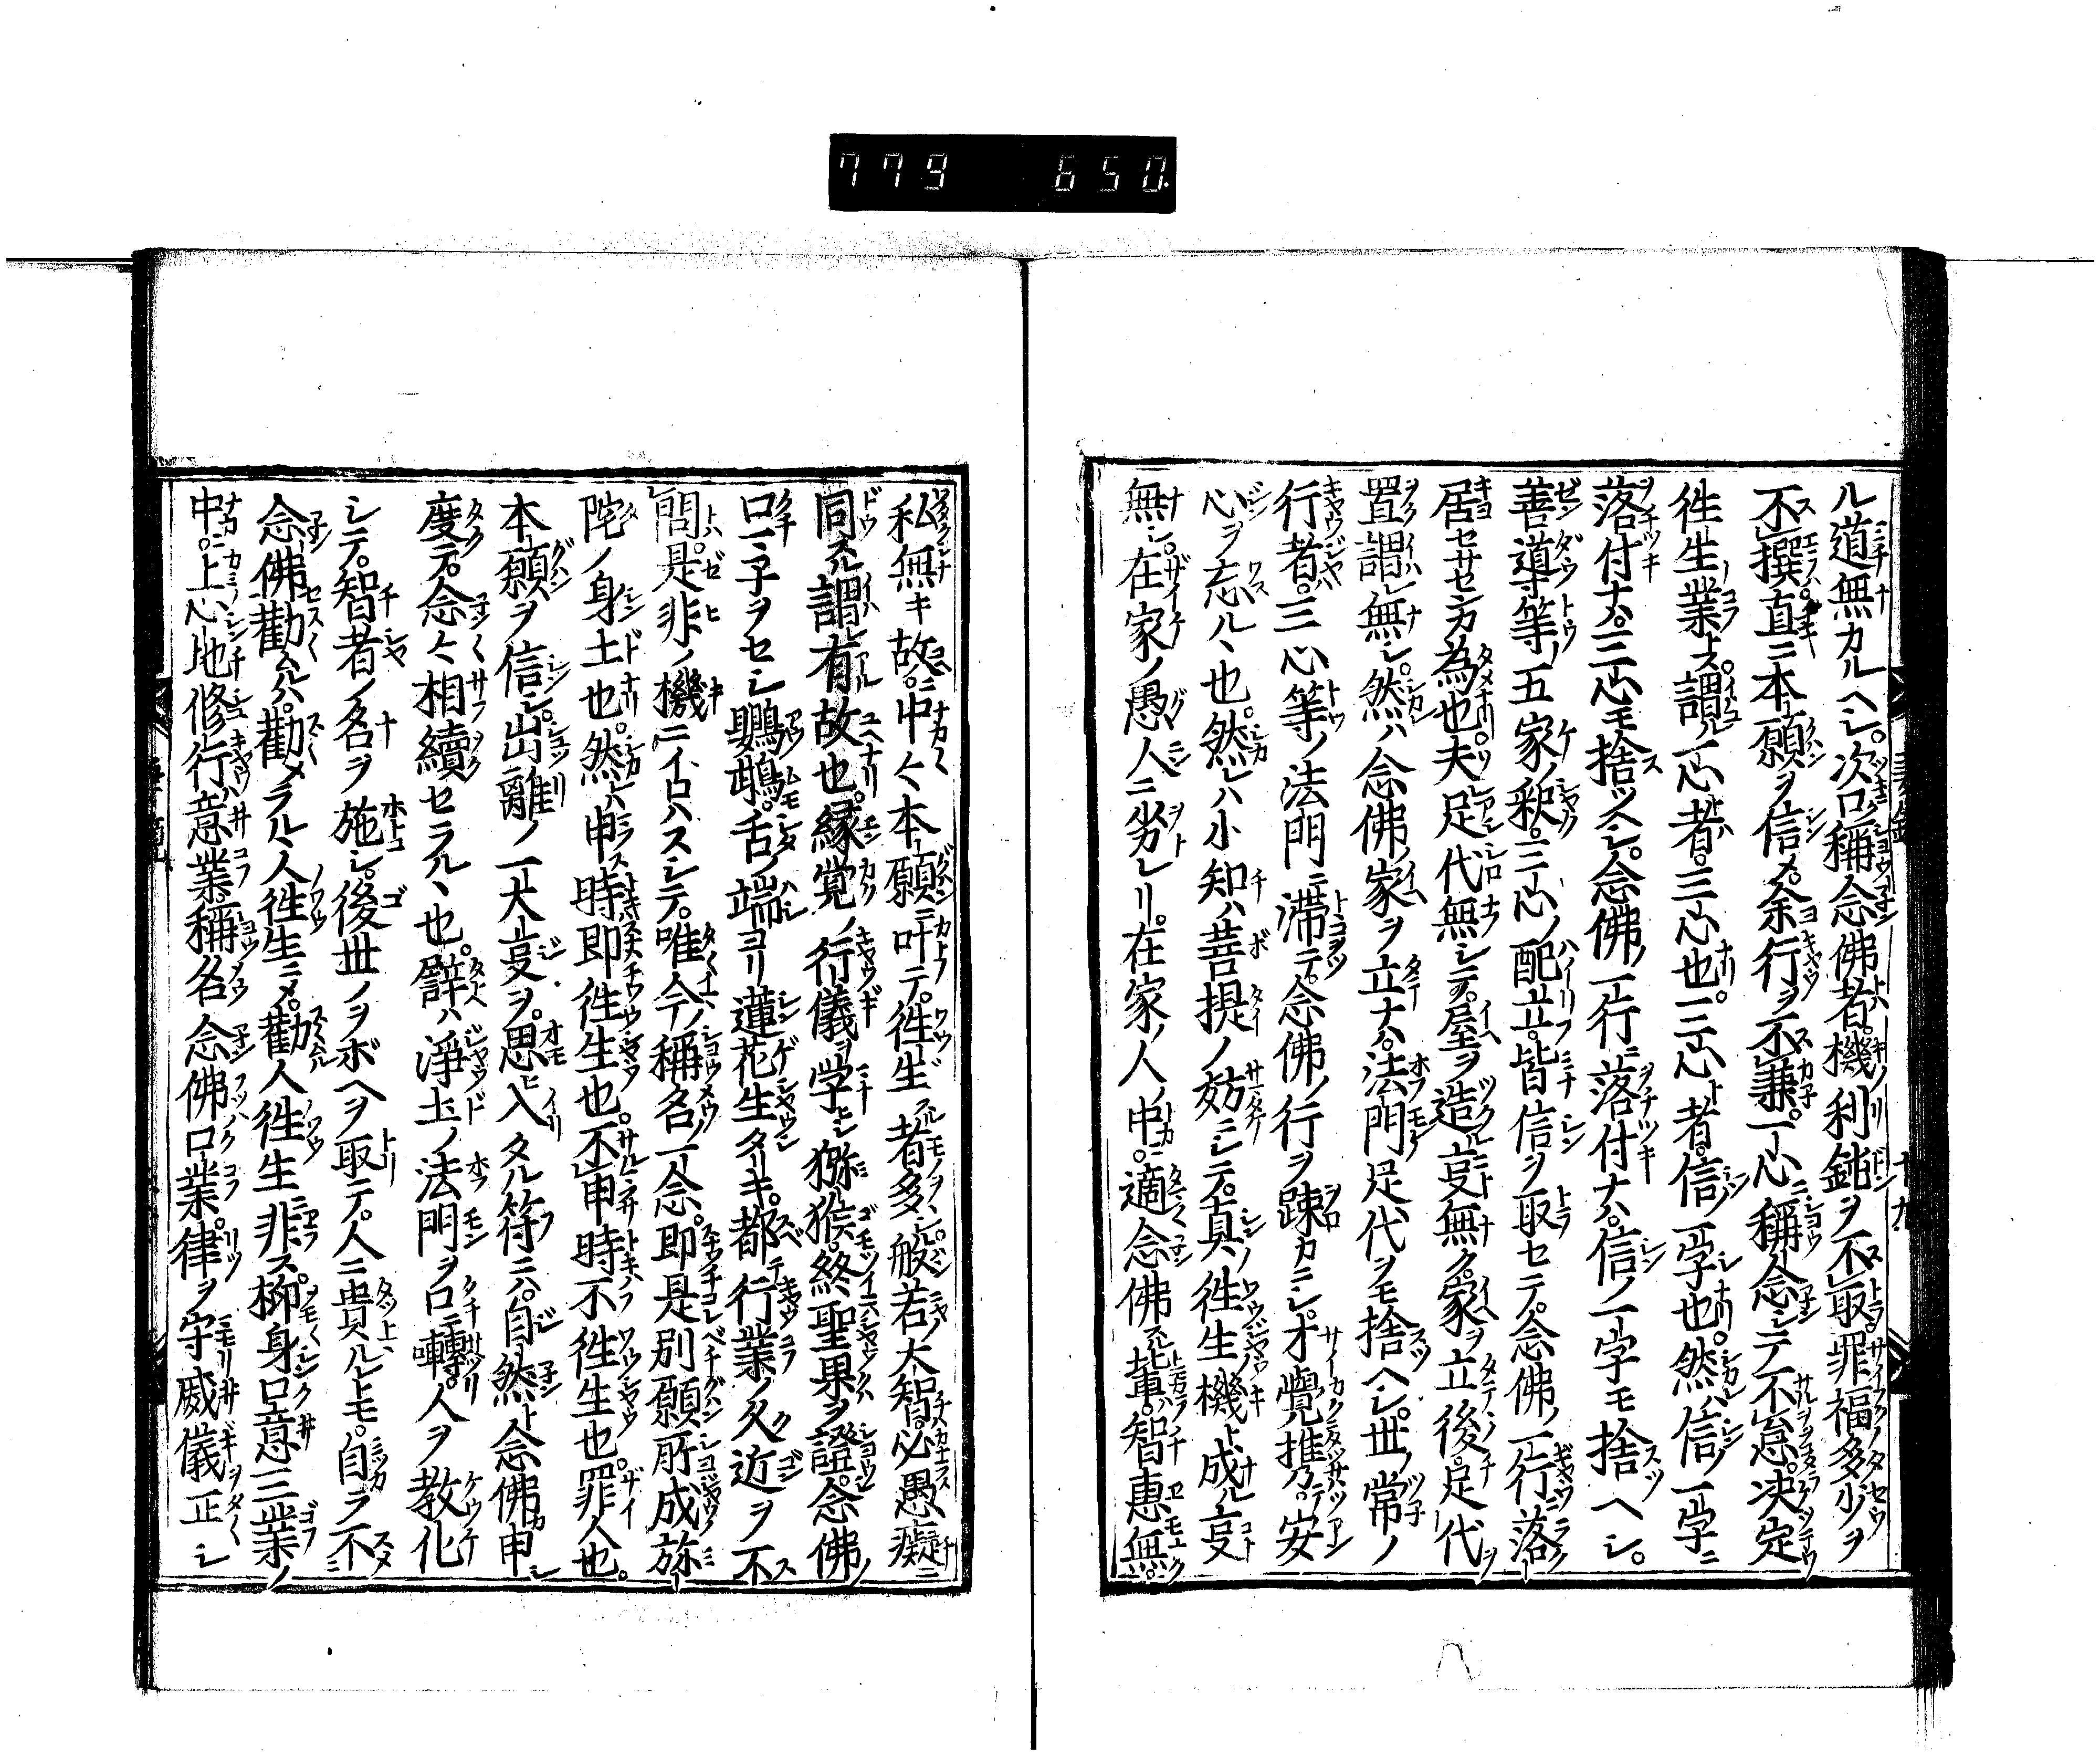 779 650.
ル道無カルヘシ。次ニ口稱念佛者。機ノ利鈍ヲ不取。罪福多少ヲ
不撰。直ニ本願ヲ信メ。余行ヲ不兼。一心ニ稱念シテ不怠。決定
徃生ノ業トス。謂ル一心者。三心也。三心ト者。信ノ一字也。然ハ信ノ一字ニ
落付ナハ。三心モ捨ツヘシ。念佛ノ一行ニ落付ナハ。信ノ一字モ捨ヘシ。
善導等ノ五家ノ釈。三心ノ配立。皆信ヲ取セテ。念佛ノ一行ニ落
居セサセンカ為也。夫足代無シテ。屋ヲ造ル叓無ク。家ヲ立後。足代ヲ
置謂レ無シ。然ハ念佛ノ家ヲ立ナハ。法門ノ足代ヲモ捨ヘシ。世ノ常ノ
行者。三心等ノ法門ニ滞テ。念佛ノ行ヲ踈カニシ。才覺ニ携テ。安
心ヲ忘ルヽ也。然レハ小知ハ菩提ノ妨ニシテ。真ノ徃生ノ機ト成ル叓
無シ。在家ノ愚人ニ劣レリ。在家ノ人ノ中ニ。適念佛スル輩ハ。智惠無。
私無キ故ニ。中〱本願ニ叶テ。徃生スル者多シ。般若ノ大智。必愚癡ニ
同スル謂レ有故也。縁覚ノ行儀ヲ学ヒシ獼猴。終ニ聖果ヲ證。念佛ノ
口マ子ヲセシ鸚鵡。舌ノ端ヨリ蓮花生タキ。都テ行業ノ久近ヲ不
問。是非ノ機ニイロハスシテ。唯今ノ稱名ノ一念。即是別願所成ノ弥
陀ノ身土也。然ハ申ス時即徃生也。不申時不徃生也。罪人也。
本願ヲ信シ。出離ノ一大叓ヲ。思ヒ入タル符ニハ。自然ト念佛カ申
度テ。念〱相續セラルヽ也。譬ハ淨土ノ法門ヲ口ニ囀リ。人ヲ教化
シテ。智者ノ名ヲ施シ。後世ノヲボヘヲ取テ。人ニ貴ルレトモ。自ラ不
念佛勸ムルハ。勸メラルヽ人ノ徃生ニメ。勸ル人ノ徃生ニ非ス。抑身口意三業ノ
中ニ。上心地修行ハ意業。稱名念佛ハ口業。律ヲ守威儀ヲ正シ